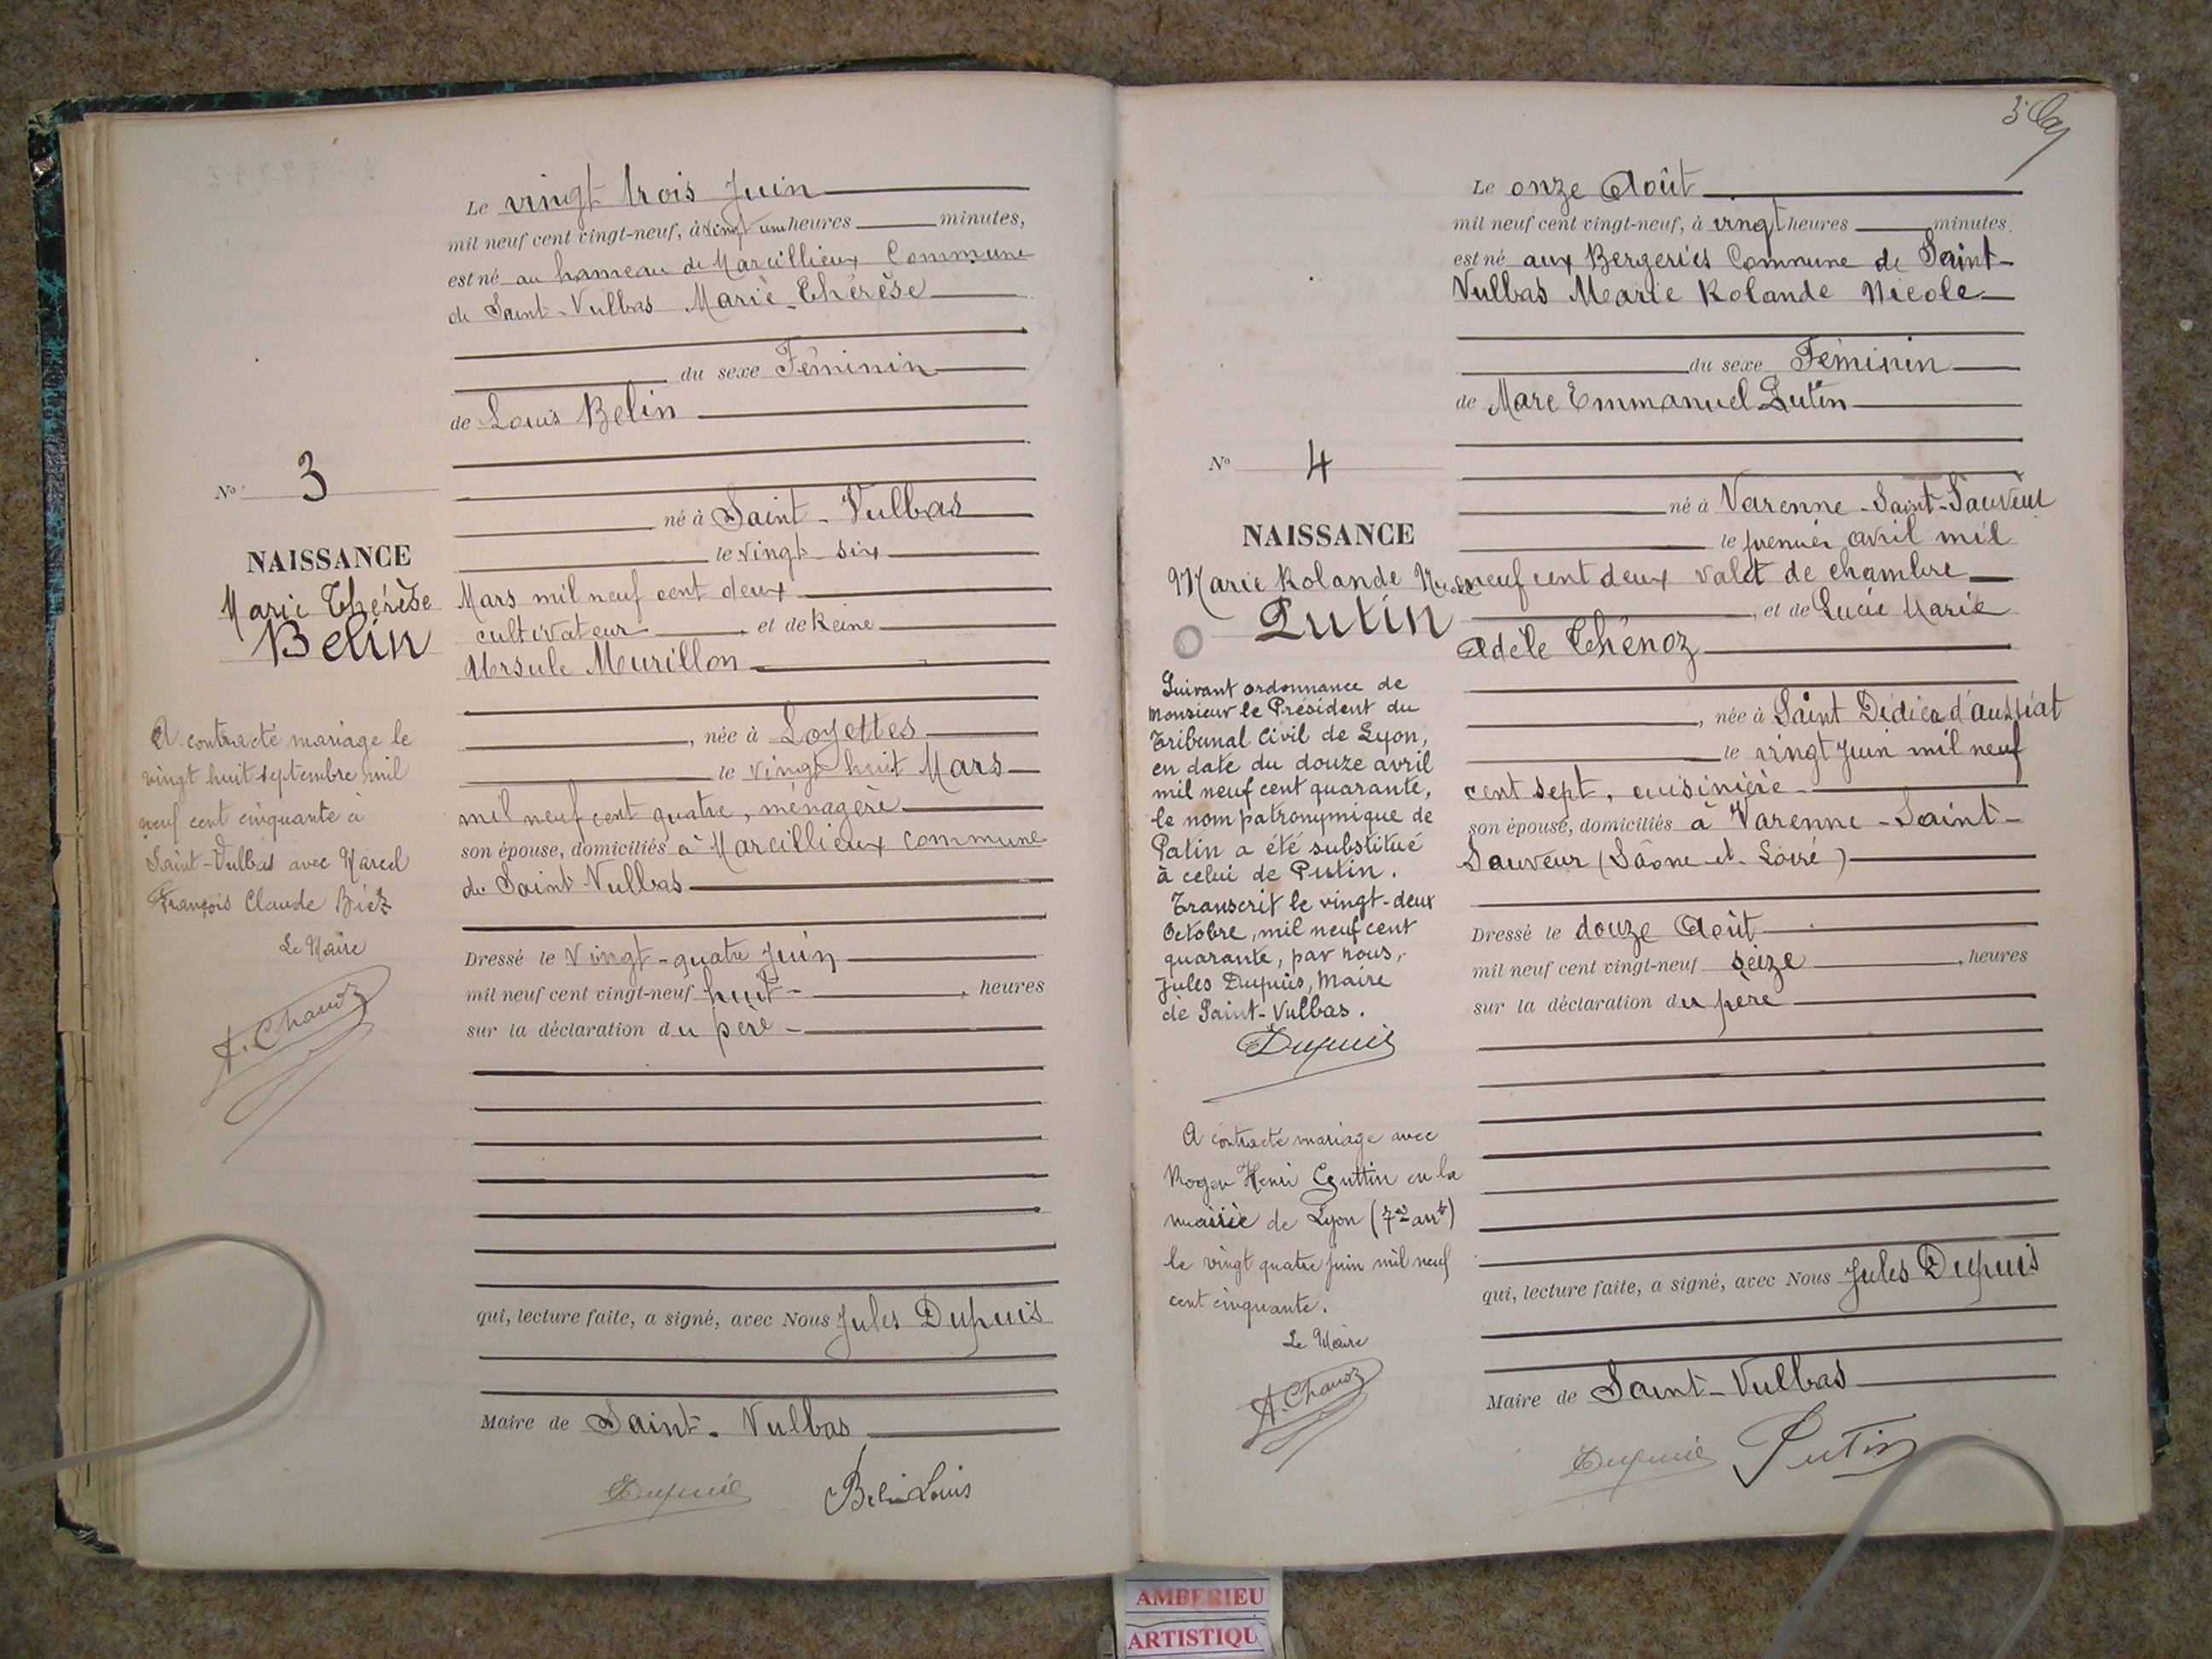 Le vingt trois Juin
mil neuf cent vingt-neuf, à vingt une heures minutes,
est né au hameau de Marcillieux Commune
de Saint-Vulbas Marie-Thérèse
du sexe Féminin
de Louis Belin
né à Saint-Vulbas
le vingt-six
Mars mil neuf cent deux
cultivateur, et de Reine
Ursule Meurillon
, née à Loyettes
le vingt huit Mars
mil neuf cent quatre, ménagère
son épouse, domiciliés à Marcillieux commune
de Saint-Vulbas
Dressé le vingt-quatre Juin
mil neuf cent vingt-neuf huit, heures
sur la déclaration du père
qui, lecture faite, a signé, avec Nous Jules Dupuis
Maire de Saint-Vulbas
Dupuis Belin Louis
No 3
NAISSANCE
Marie Thérèse
Belin
A contracté mariage le
vingt huit septembre mil
neuf cent cinquante à
Saint-Vulbas avec Marcel
François Claude Biez
Le Maire
A. Chanoz
3
Le onze Août
mil neuf cent vingt-neuf, à vingt heures minutes,
est né aux Bergeries Commune de Saint-
Vulbas Marie Rolande Nicole
du sexe Féminin
de Marc Emmanuel Putin
né à Varenne-Saint-Sauveur
le premier avril mil
neuf cent deux valet de chambre
, et de Lucie Marie
Adèle Thénoz
, née à Saint Didier d'aussiat
le vingt juin mil neuf
cent sept, cuisinière
son épouse, domiciliés à Varenne-Saint-
Sauveur (Saône-et-Loire)
Dressé le douze Août
mil neuf cent vingt-neuf seize, heures
sur la déclaration du père
qui, lecture faite, a signé, avec Nous Jules Dupuis
Maire de Saint-Vulbas
Dupuis Putin
No 4
NAISSANCE
Marie Rolande Nicole
Putin
Suivant ordonnance de
Monsieur le Président du
Tribunal Civil de Lyon,
en date du douze avril
mil neuf cent quarante,
le nom patronymique de
Patin a été substitué
à celui de Putin.
Transcrit le vingt-deux
Octobre, mil neuf cent
quarante, par nous,
Jules Dupuis, Maire
de Saint-Vulbas.
Dupuis
A contracté mariage avec
Roger Henri Guttin en la
mairie de Lyon (7e arrt)
le vingt quatre juin mil neuf
cent cinquante.
Le Maire
A. Chanoz
AMBERIEU
ARTISTIQU